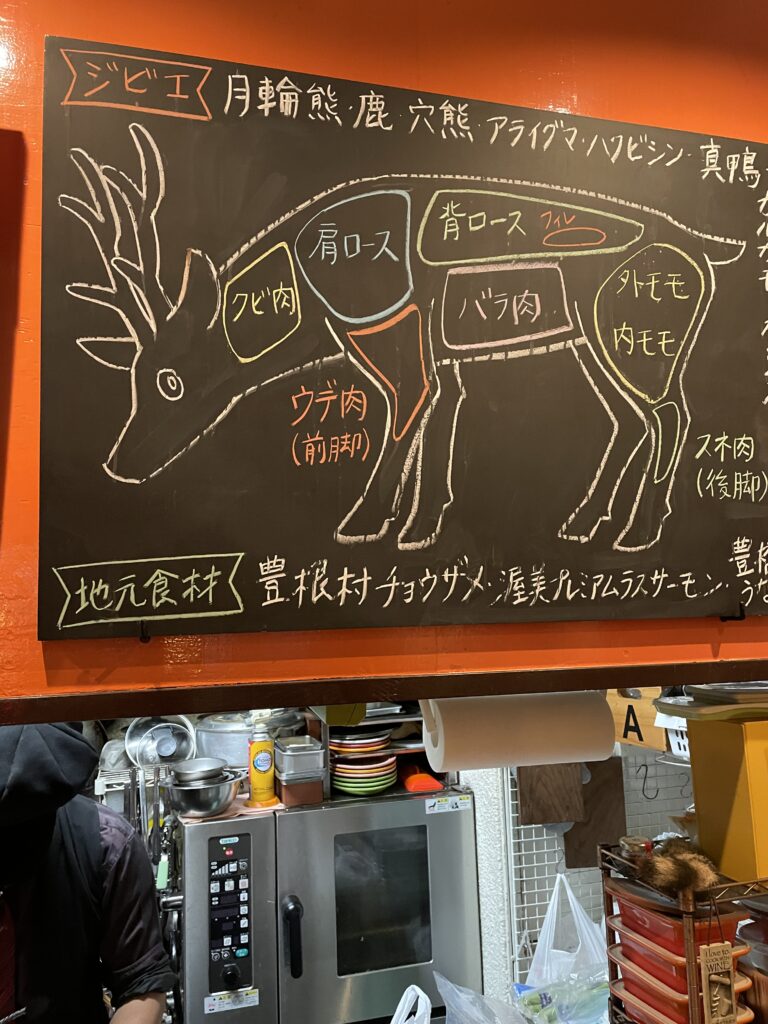 ジビエ
月輪熊・鹿・穴熊・アライグマ・ハクビシン・真鴨
背ロース
フィレ
肩ロース
クビ肉
バラ肉
外トモモ
内モモ
ウデ肉
(前脚)
スネ肉
(後脚)
地元食材
豊根村チョウザメ・渥美プレミアムラスサーモン・
うな
A
I love to
WINE